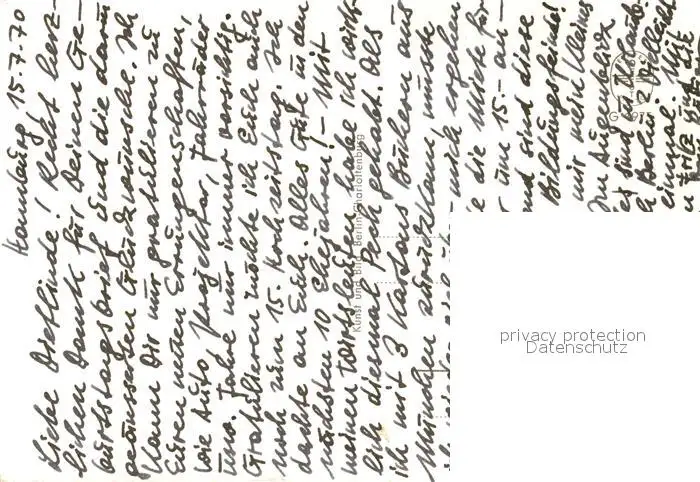 Hamburg 15.7.70
Liebe Dietlinde! Recht herz-
lichen Dank für Deinen Ge-
burtstagsbrief und die darin
geäusserten Glückwünsche. Ich
kann Dir nur gratulieren zu
Euren neuen Errungenschaften,
wie Auto, Projektor, Fahrräder
usw. Fahre nur immer vorsichtig.
Gratulieren möchte ich Euch auch
noch zum 15. Hochzeitstag. Ich
dachte an Euch. Alles Gute in den
nächsten 10 Ehejahren! – Mit
meinen Wirtsleuten habe ich wirk-
lich diesmal Pech gehabt. Als
ich mit 3 Kartons Büchern aus
München zurückkam, musste
ich
mich ergehen
die Miete für
um 15.- an-
und sind diese
Bildungsfeinde!
mir mein kleines
Im Augenblick
sind in Urlaub.
Berlin. Vielleicht
einmal. Mit
und
Kunst und Bild, Berlin-Charlottenburg
privacy protection
Datenschutz